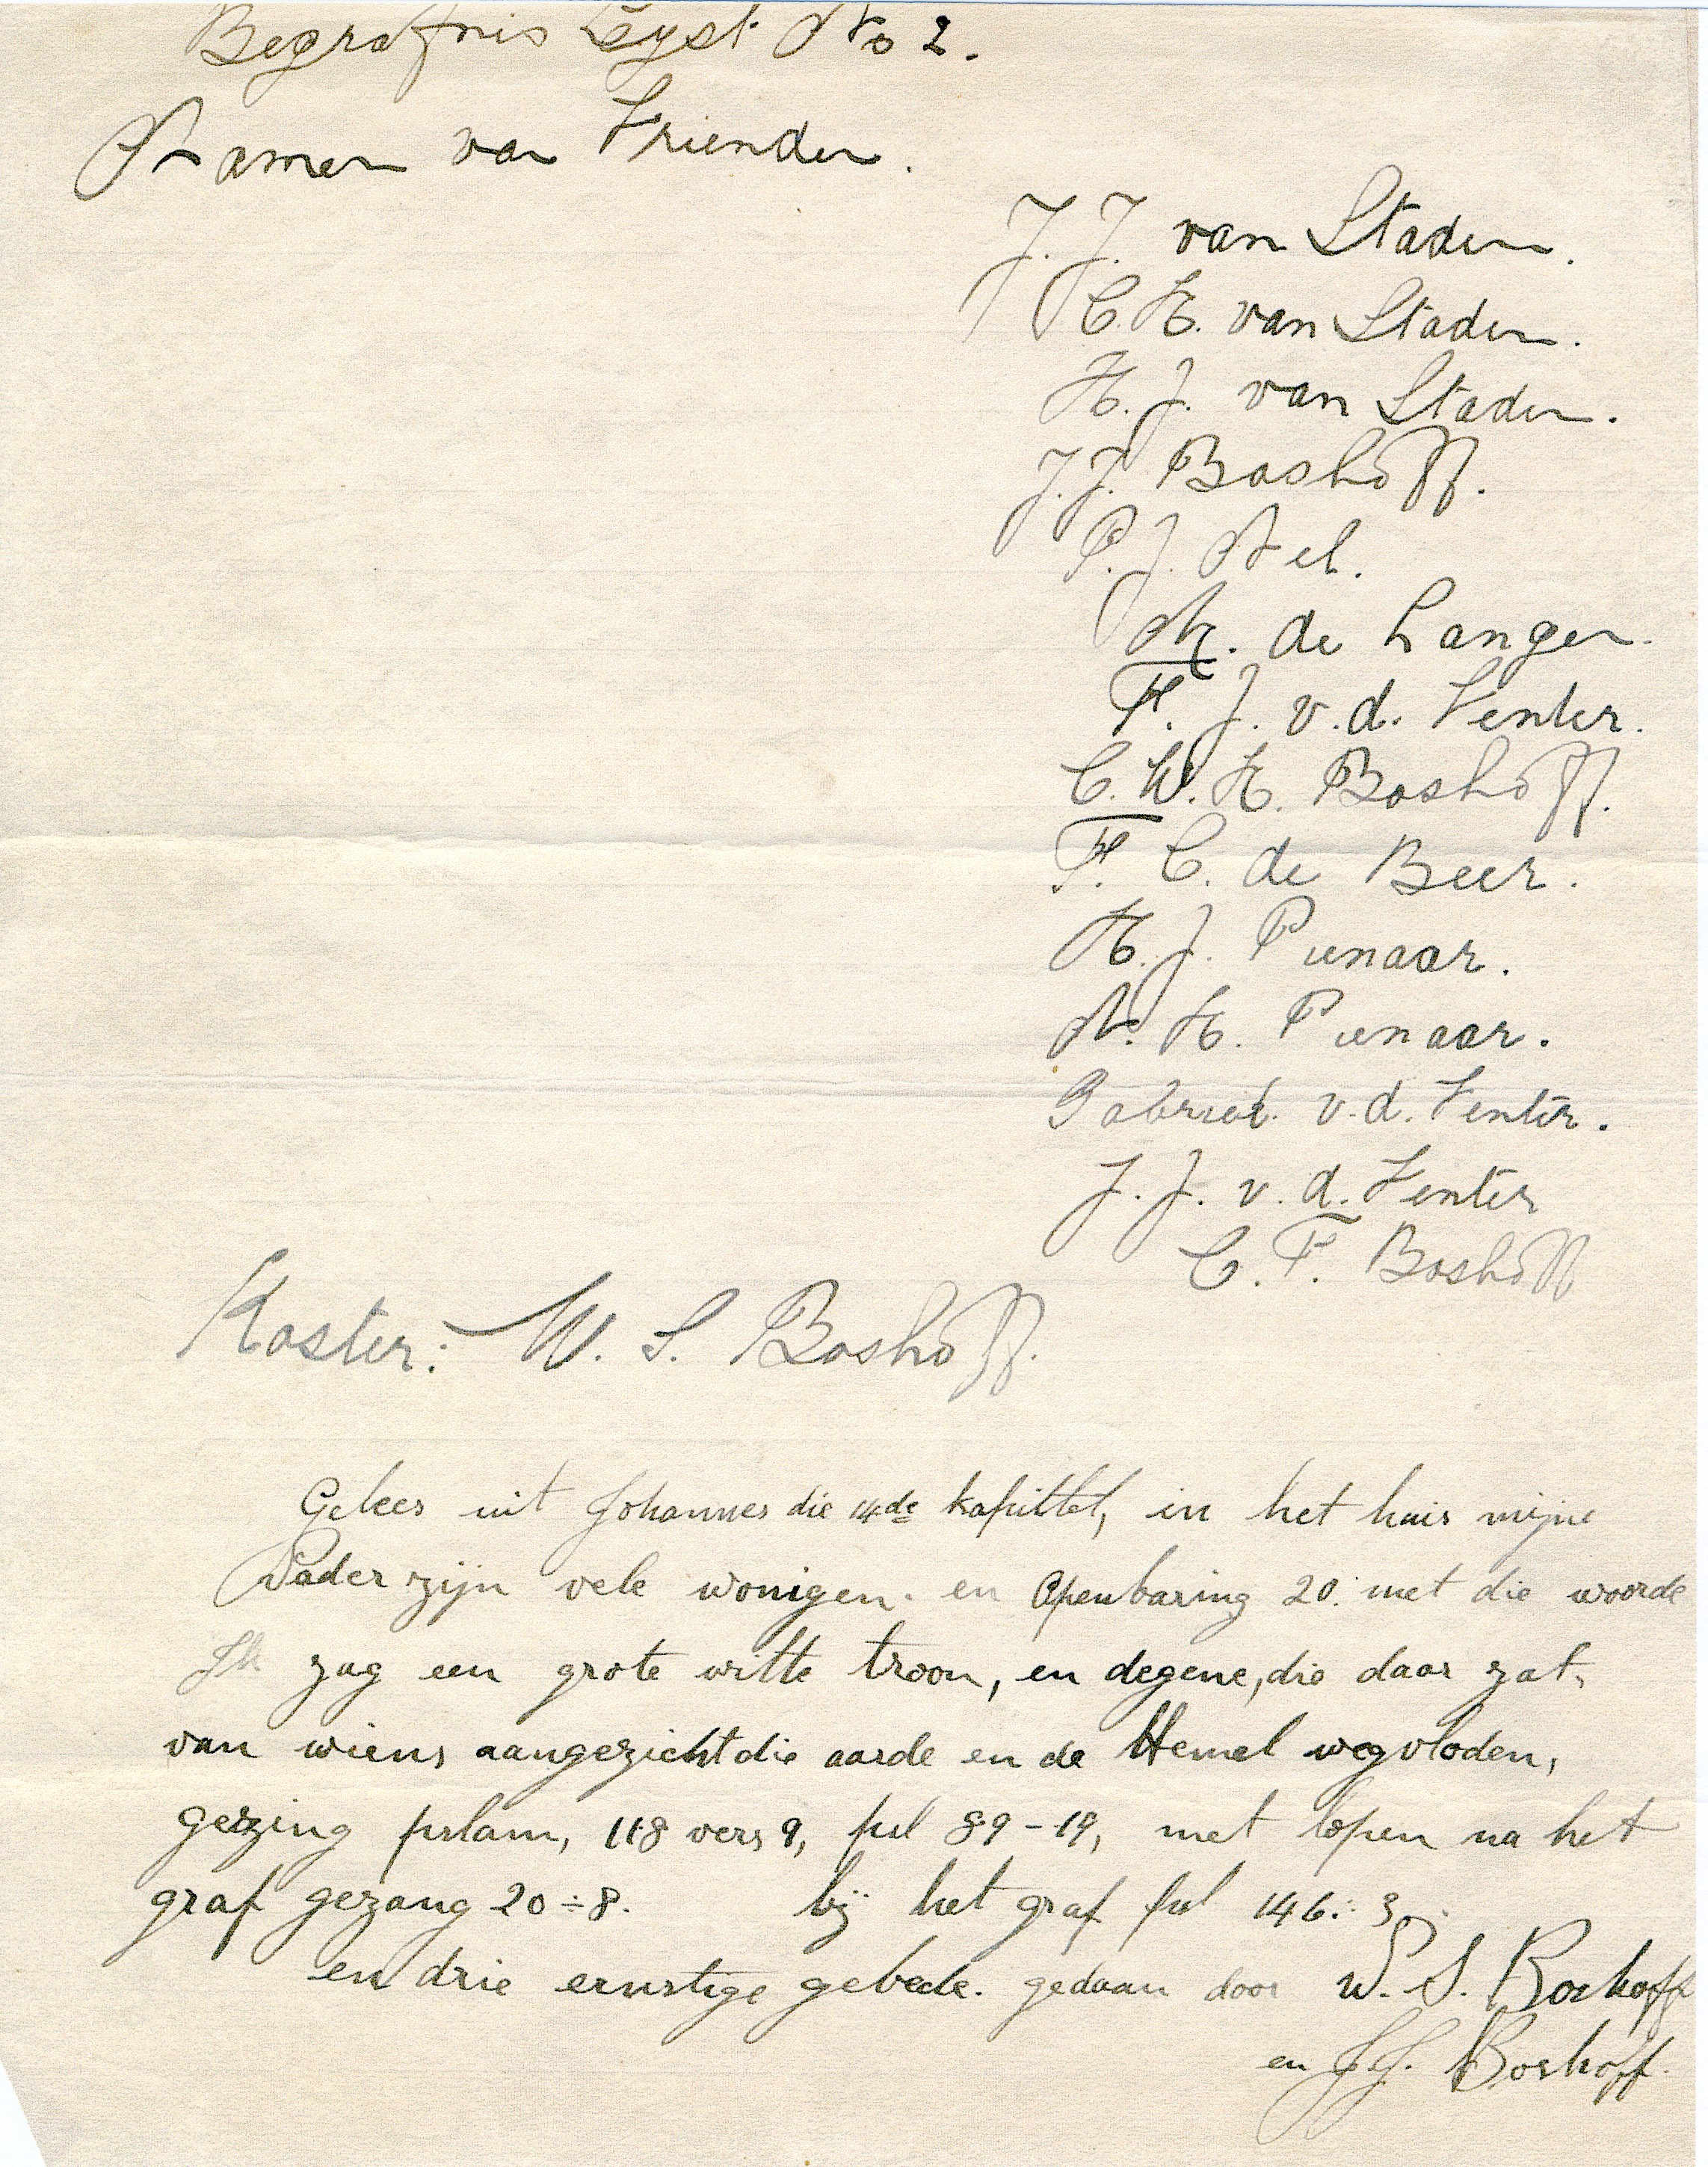 Begrafnis Leyst No 2.
Namen van Vrienden.
J. J. van Staden.
C. H. van Staden.
H. J. van Staden.
J. J. Boshoff.
P. J. Nel.
M. de Langen.
F. J. v. d. Venter.
C. W. H. Boshoff.
F. C. de Beer.
H. J. Pienaar.
N. H. Pienaar.
Gabriel. v. d. Venter.
J. J. v. d. Venter
C. F. Boshoff
Koster: W. S. Boshoff.
Gelees uit Johannes die 14de kapittel, in het huis mijne
Vader zijn vele wonigen. en Openbaring 20: met die woorde
Ik zag een grote witte troon, en degene, die daar zat,
van wiens aangezicht die aarde en de Hemel wegvloden,
gezing pslam, 118 vers 9, psl 89-19, met lopen na het
graf gezang 20÷8. bij het graf psl 146: 3.
en drie ernstige gebede. gedaan door W. S. Boshoff
en J J. Boshoff.